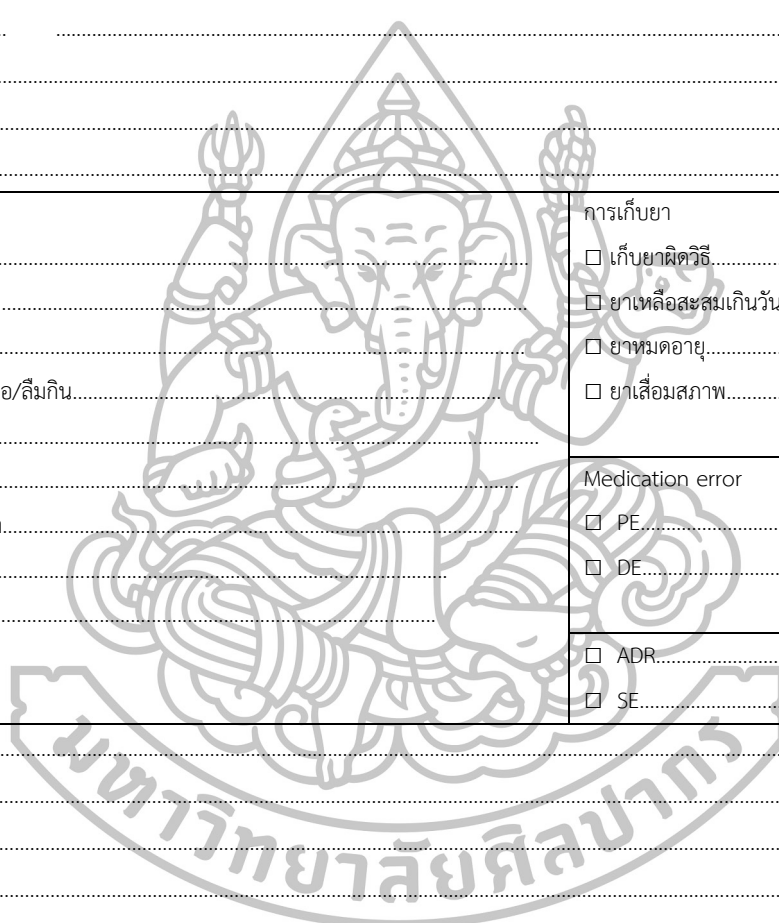 การเก็บยา
☐ เก็บยาผิดวิธี
☐ ยาเหลือสะสมเกินวัน
☐ ยาหมดอายุ
อ/ลืมกิน
☐ ยาเสื่อมสภาพ
Medication error
☐ PE
☐ DE
☐ ADR
☐ SE
มหาวิทยาลัยศิลปากร